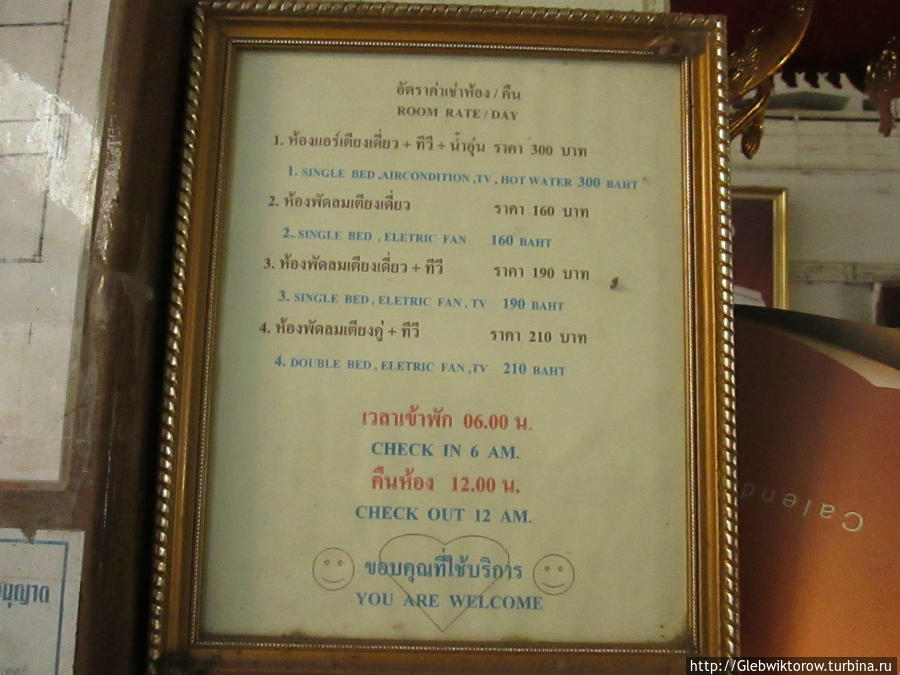 อัตราค่าเช่าห้อง / คืน
ROOM RATE / DAY
1. ห้องแอร์เตียงเดี่ยว + ทีวี + น้ำอุ่น ราคา 300 บาท
1. SINGLE BED ,AIRCONDITION ,TV , HOT WATER 300 BAHT
2. ห้องพัดลมเตียงเดี่ยว ราคา 160 บาท
2. SINGLE BED , ELETRIC FAN 160 BAHT
3. ห้องพัดลมเตียงเดี่ยว + ทีวี ราคา 190 บาท
3. SINGLE BED , ELETRIC FAN , TV 190 BAHT
4. ห้องพัดลมเตียงคู่ + ทีวี ราคา 210 บาท
4. DOUBLE BED , ELETRIC FAN ,TV 210 BAHT
เวลาเข้าพัก 06.00 น.
CHECK IN 6 AM.
คืนห้อง 12.00 น.
CHECK OUT 12 AM.
ขอบคุณที่ใช้บริการ
YOU ARE WELCOME
Calend
http://Glebwiktorow.turbina.ru